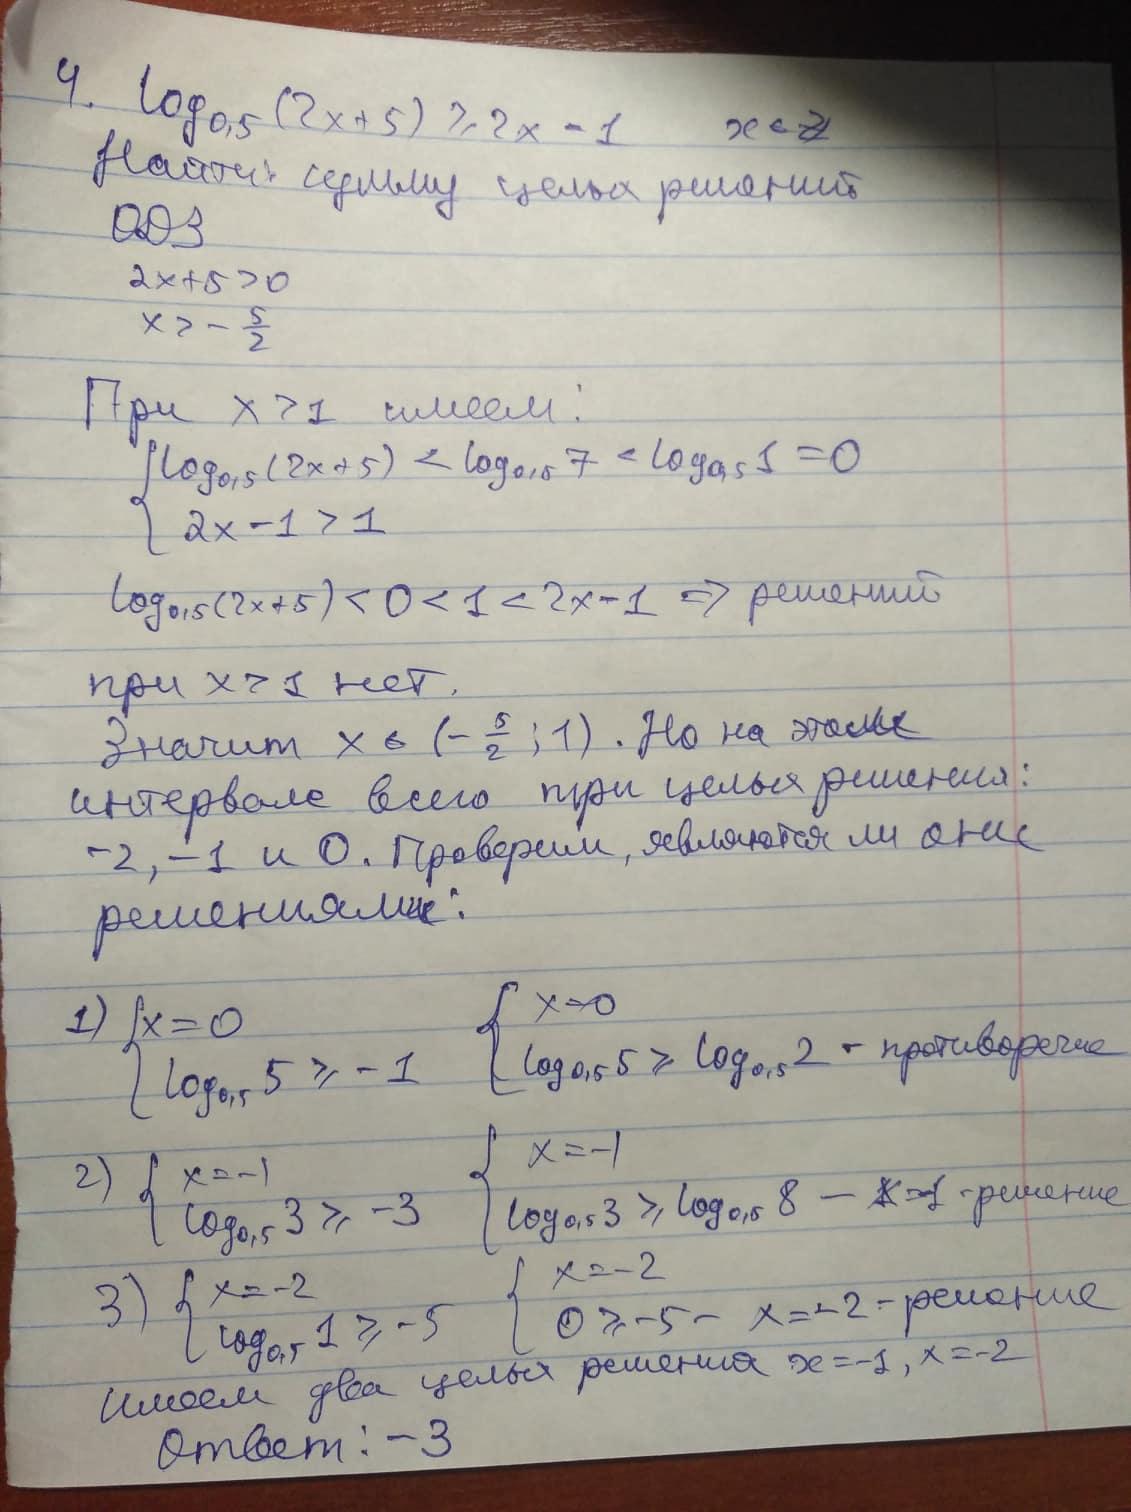 4. log₀,₅(2x+5) ⩾ 2x-1 x ∈ Z
Найти сумму целых решений
ОДЗ
2x+5>0
x > -5/2
При x > 1 имеем:
{ log₀,₅(2x+5) < log₀,₅7 < log₀,₅1 = 0
2x-1 > 1
log₀,₅(2x+5) < 0 < 1 < 2x-1 => решений
при x > 1 нет.
Значит x ∈ (-5/2; 1). Но на этом
интервале всего три целых решения:
-2, -1 и 0. Проверим, являются ли они
решениями:
1) { x = 0 { x = 0
log₀,₅5 ⩾ -1 log₀,₅5 ⩾ log₀,₅2 - противоречие
2) { x = -1 { x = -1
log₀,₅3 ⩾ -3 log₀,₅3 ⩾ log₀,₅8 - x=-1 - решение
3) { x = -2 { x = -2
log₀,₅1 ⩾ -5 0 ⩾ -5 - x = -2 - решение
Имеем два целых решения x = -1, x = -2
Ответ: -3